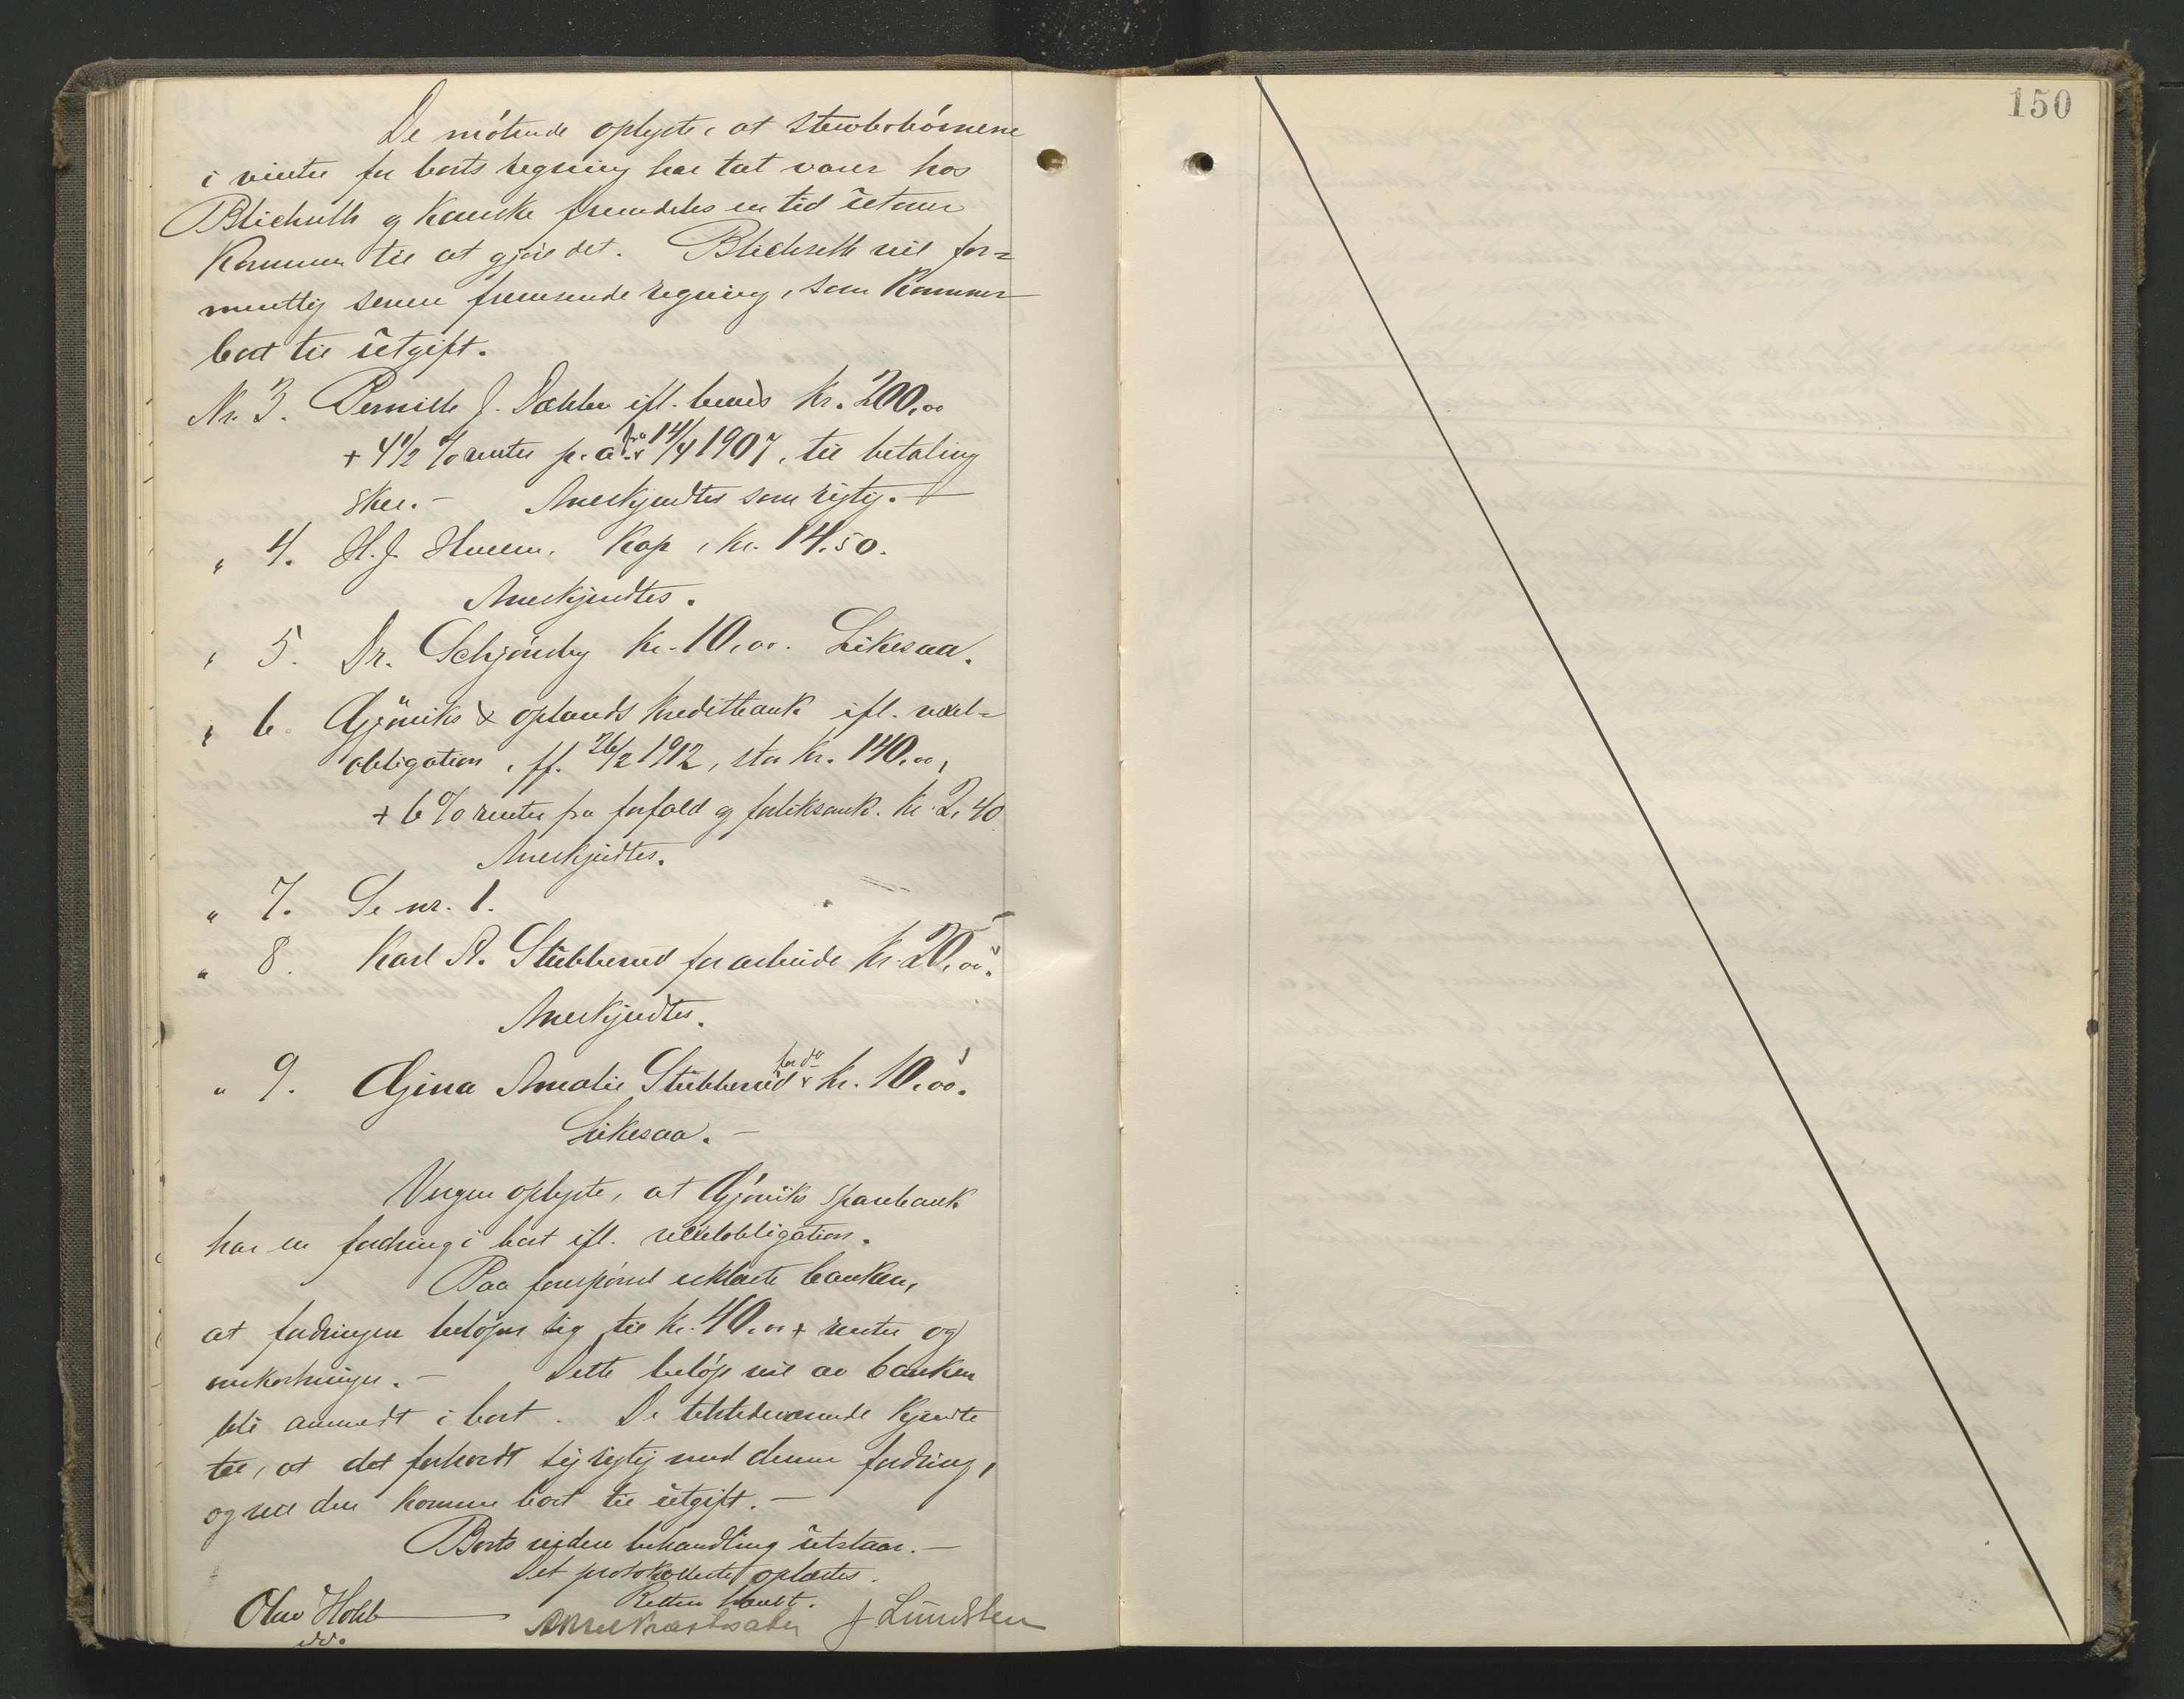 De møtende oplyste, at sterbobørnene
i vinter for boets regning har tat varer hos
Blichseth og kanske fremdeles en tid utover
kommer til at gjøre det. Blichseth vil for=
mentlig senere fremsende regning, som kommer
boet til utgift.
Nr. 3. Pernille J. Dahlen ifl. bevis kr. 200,00
+ 4 1/2 % renter p. a. fra 14/4 1907, til betaling
sker. - Anerkjendtes som rigtig. -
" 4. H. J. Kop, kr. 14.50.
Anerkjendtes.
" 5. Dr. Schjønsby kr. 10,00. Likesaa.
" 6. Gjøviks & oplands kreditbank ifl. vexel=
obligation, ff. 26/2 1912, stor kr. 140,00,
+ 6 % renter fra forfald og forliksomk. kr. 2,40
Anerkjendtes.
" 7. Se nr. 1.
" 8. Karl A. Stubberud for arbeide kr. 20,00.
Anerkjendtes.
" 9. Gina Amalie Stubberud for do kr. 10,00.
Likesaa. -
Vergen oplyste, at Gjøviks sparebank
har en fordring i boet ifl. vexelobligation.
Paa forespørsel erklærte banken,
at fordringen beløper sig til kr. 40,00 + renter og
omkostninger. - Dette beløp vil av banken
bli anmeldt i boet. De tilstedeværende kjendte
til, at det forholdt sig rigtig med denne fordring,
og vil den komme boet til utgift. -
Boets videre behandling utstaar. -
Det protokollerte oplæstes.
Retten hævet.
Olav Holt J Lundsten
edv.
150